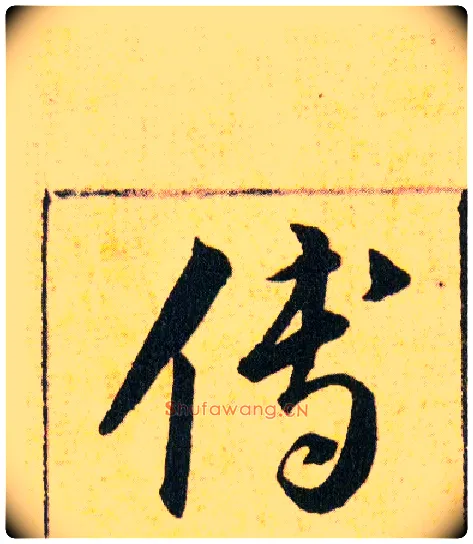 傅
Shufawang.CN